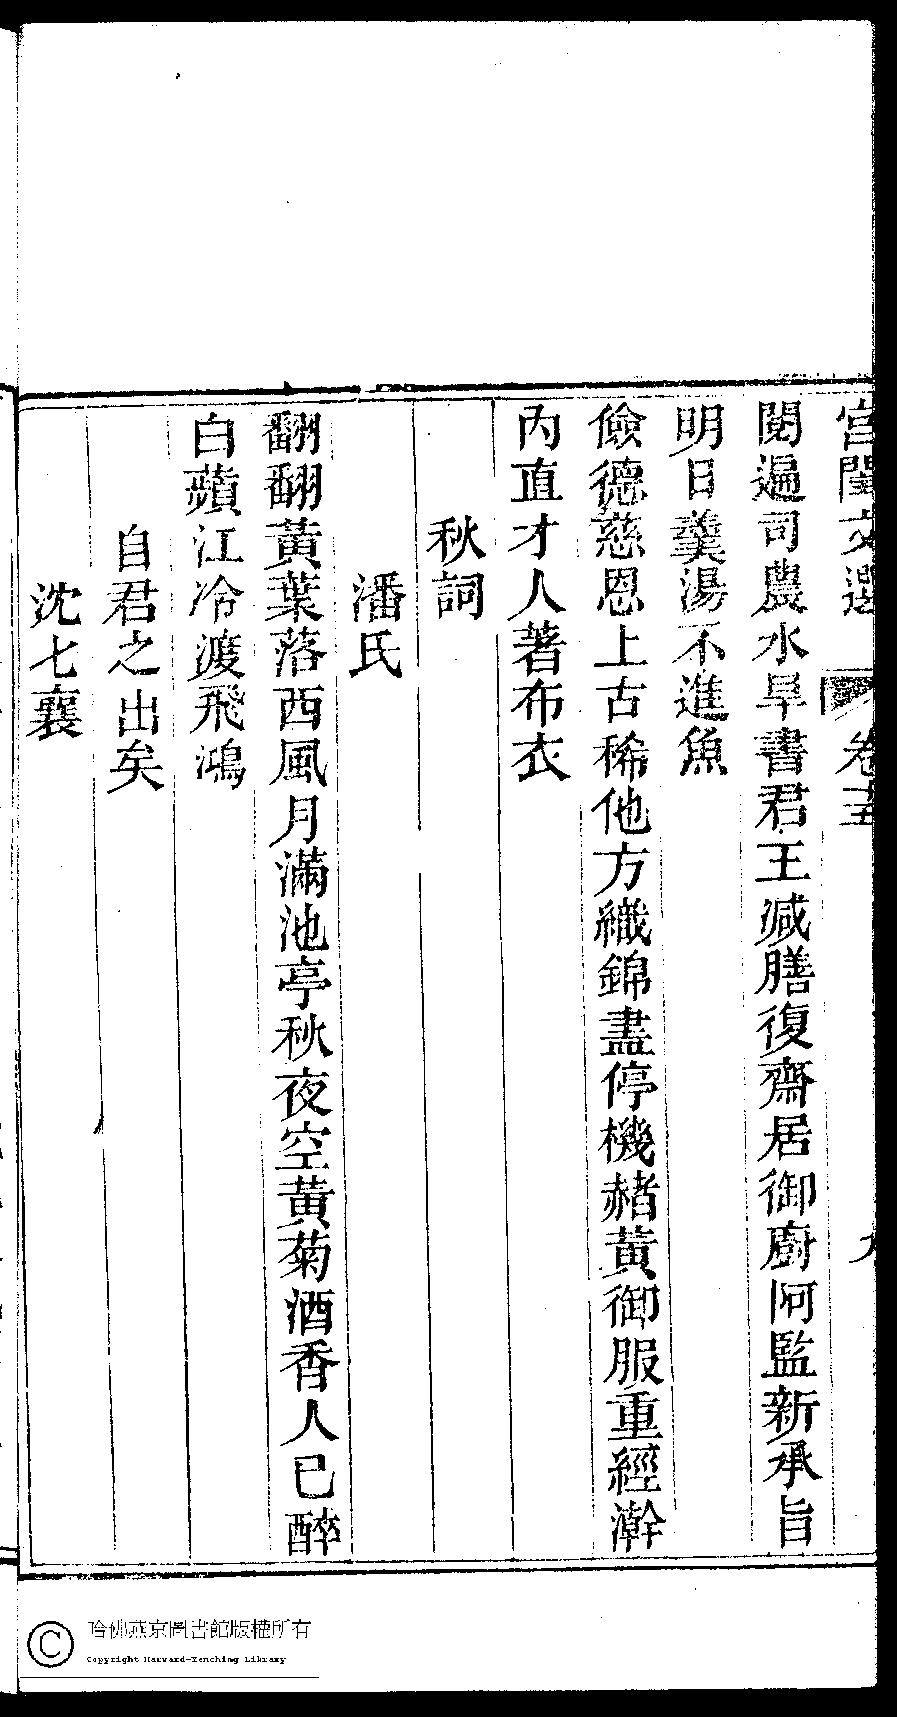 宮閨文選 卷十五 九
閱遍司農水旱書君王減膳復齋居御廚阿監新承旨
明日羹湯不進魚
儉德慈恩上古稀他方織錦盡停機赭黃御服重經澣
內直才人著布衣
秋詞
潘氏
翻翻黃葉落西風月滿池亭秋夜空黃菊酒香人已醉
白蘋江冷渡飛鴻
自君之出矣
沈七襄
哈佛燕京圖書館版權所有
Copyright Harvard-Yenching Library